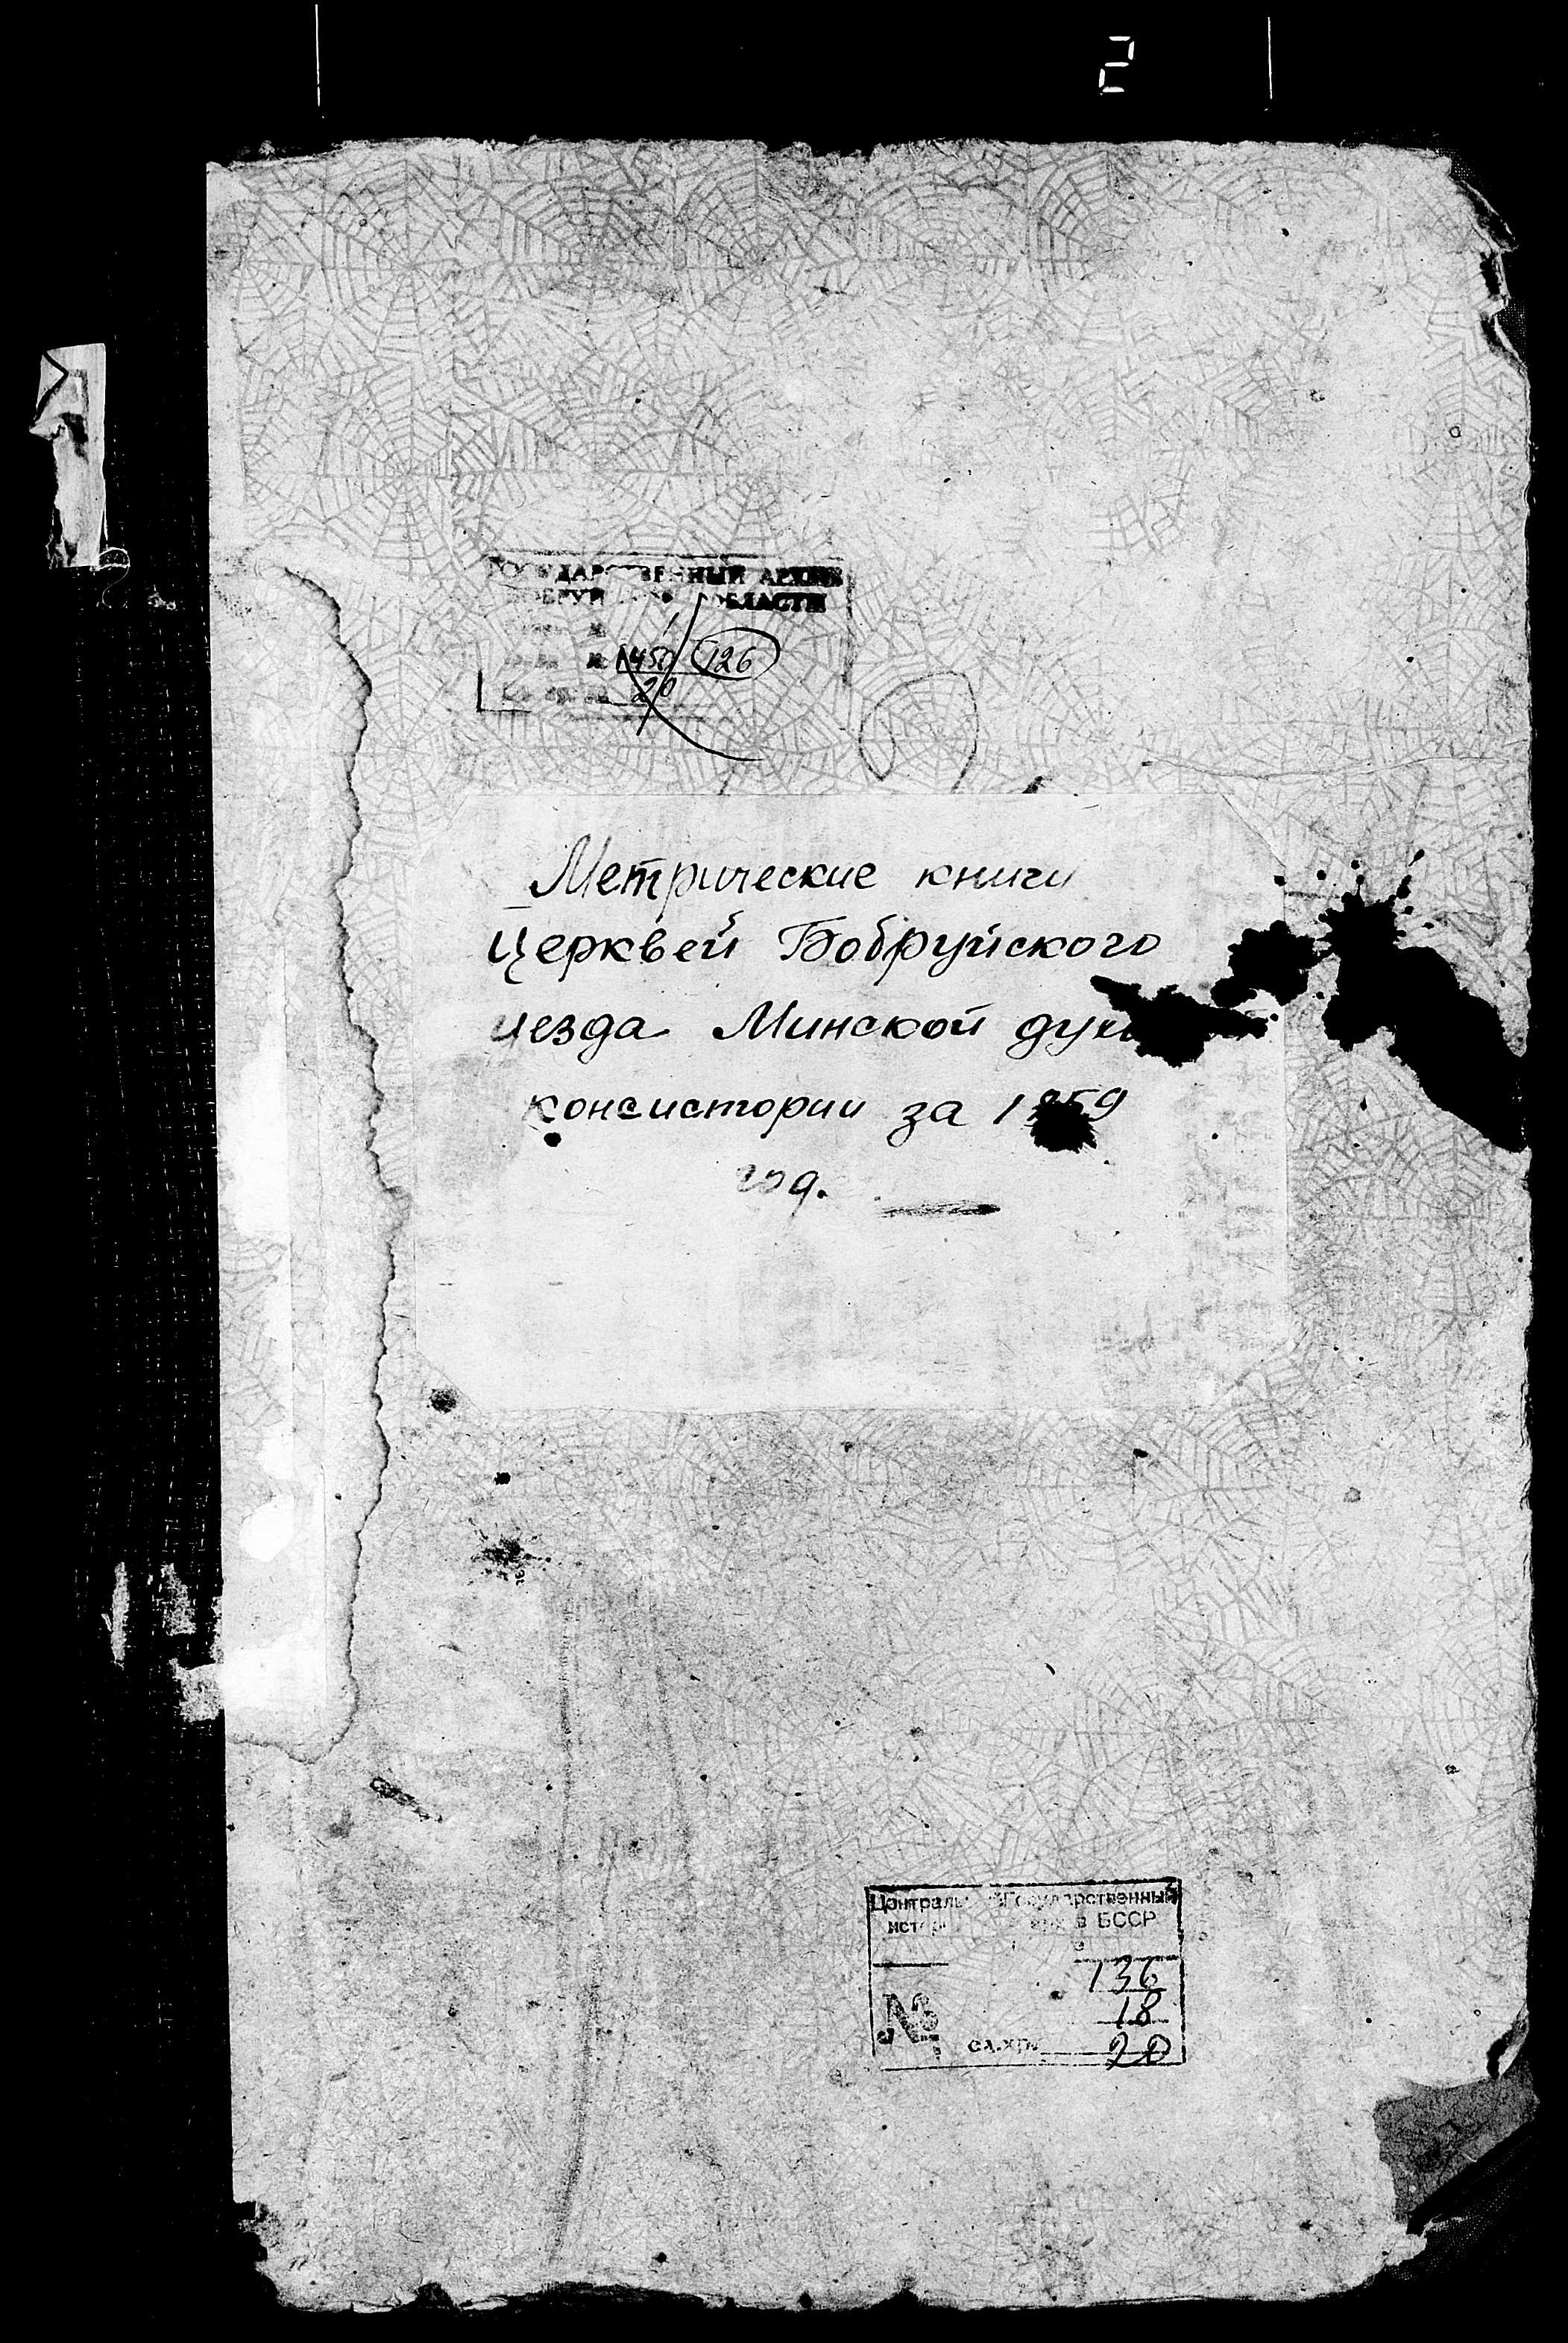 2
ГОСУДАРСТВЕННЫЙ АРХИВ
БОБРУЙСКОЙ ОБЛАСТИ
№
№ 450 126
20
Метрические книги
церквей Бобруйского
уезда Минской
консистории за 1859
год.
Центральный Государственный
БССР
136
18
№ 20